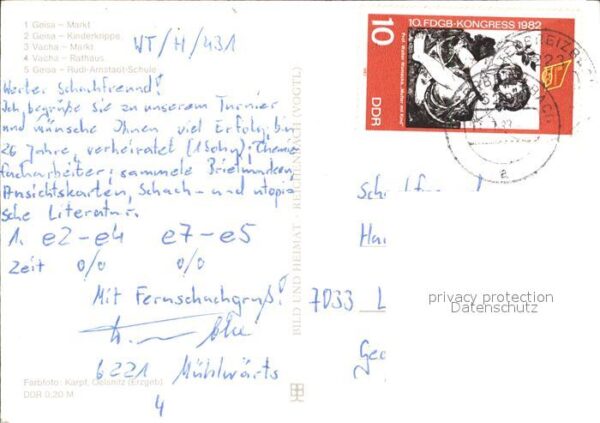 1 Geisa – Markt
2 Geisa – Kinderkrippe
3 Vacha – Markt
4 Vacha – Rathaus
5 Geisa – Rudi-Arnstadt-Schule
WT/H/431
Werter Schachfreund!
Ich begrüße Sie zu unserem Turnier
und wünsche Ihnen viel Erfolg, bin
26 Jahre, verheiratet (1 Sohn), Chemie-
facharbeiter; sammele Briefmarken,
Ansichtskarten, Schach- und utopi-
sche Literatur.
1. e2–e4 e7–e5
Zeit 0/0 0/0
Mit Fernschachgruß!
6221 Mühlwärts
4
Farbfoto: Karpf, Oelsnitz (Erzgeb)
DDR 0,20 M
BILD UND HEIMAT REICHENBACH (VOGTL)
10
10. FDGB-KONGRESS 1982
DDR
7033 L
privacy protection
Datenschutz
a